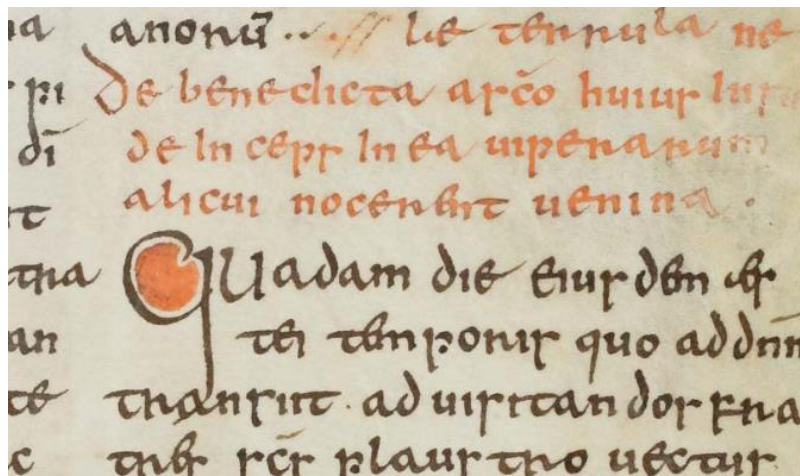 anorū De terrula ne
De benedicta a sc̄o huius insu
deinceps in ea uiperarum
alicui nocerent uenina
Quadam die eiusdem aes
tei temporis quo ad dnm
transiit ad uisitandos fra
tres scs plaustro uectus